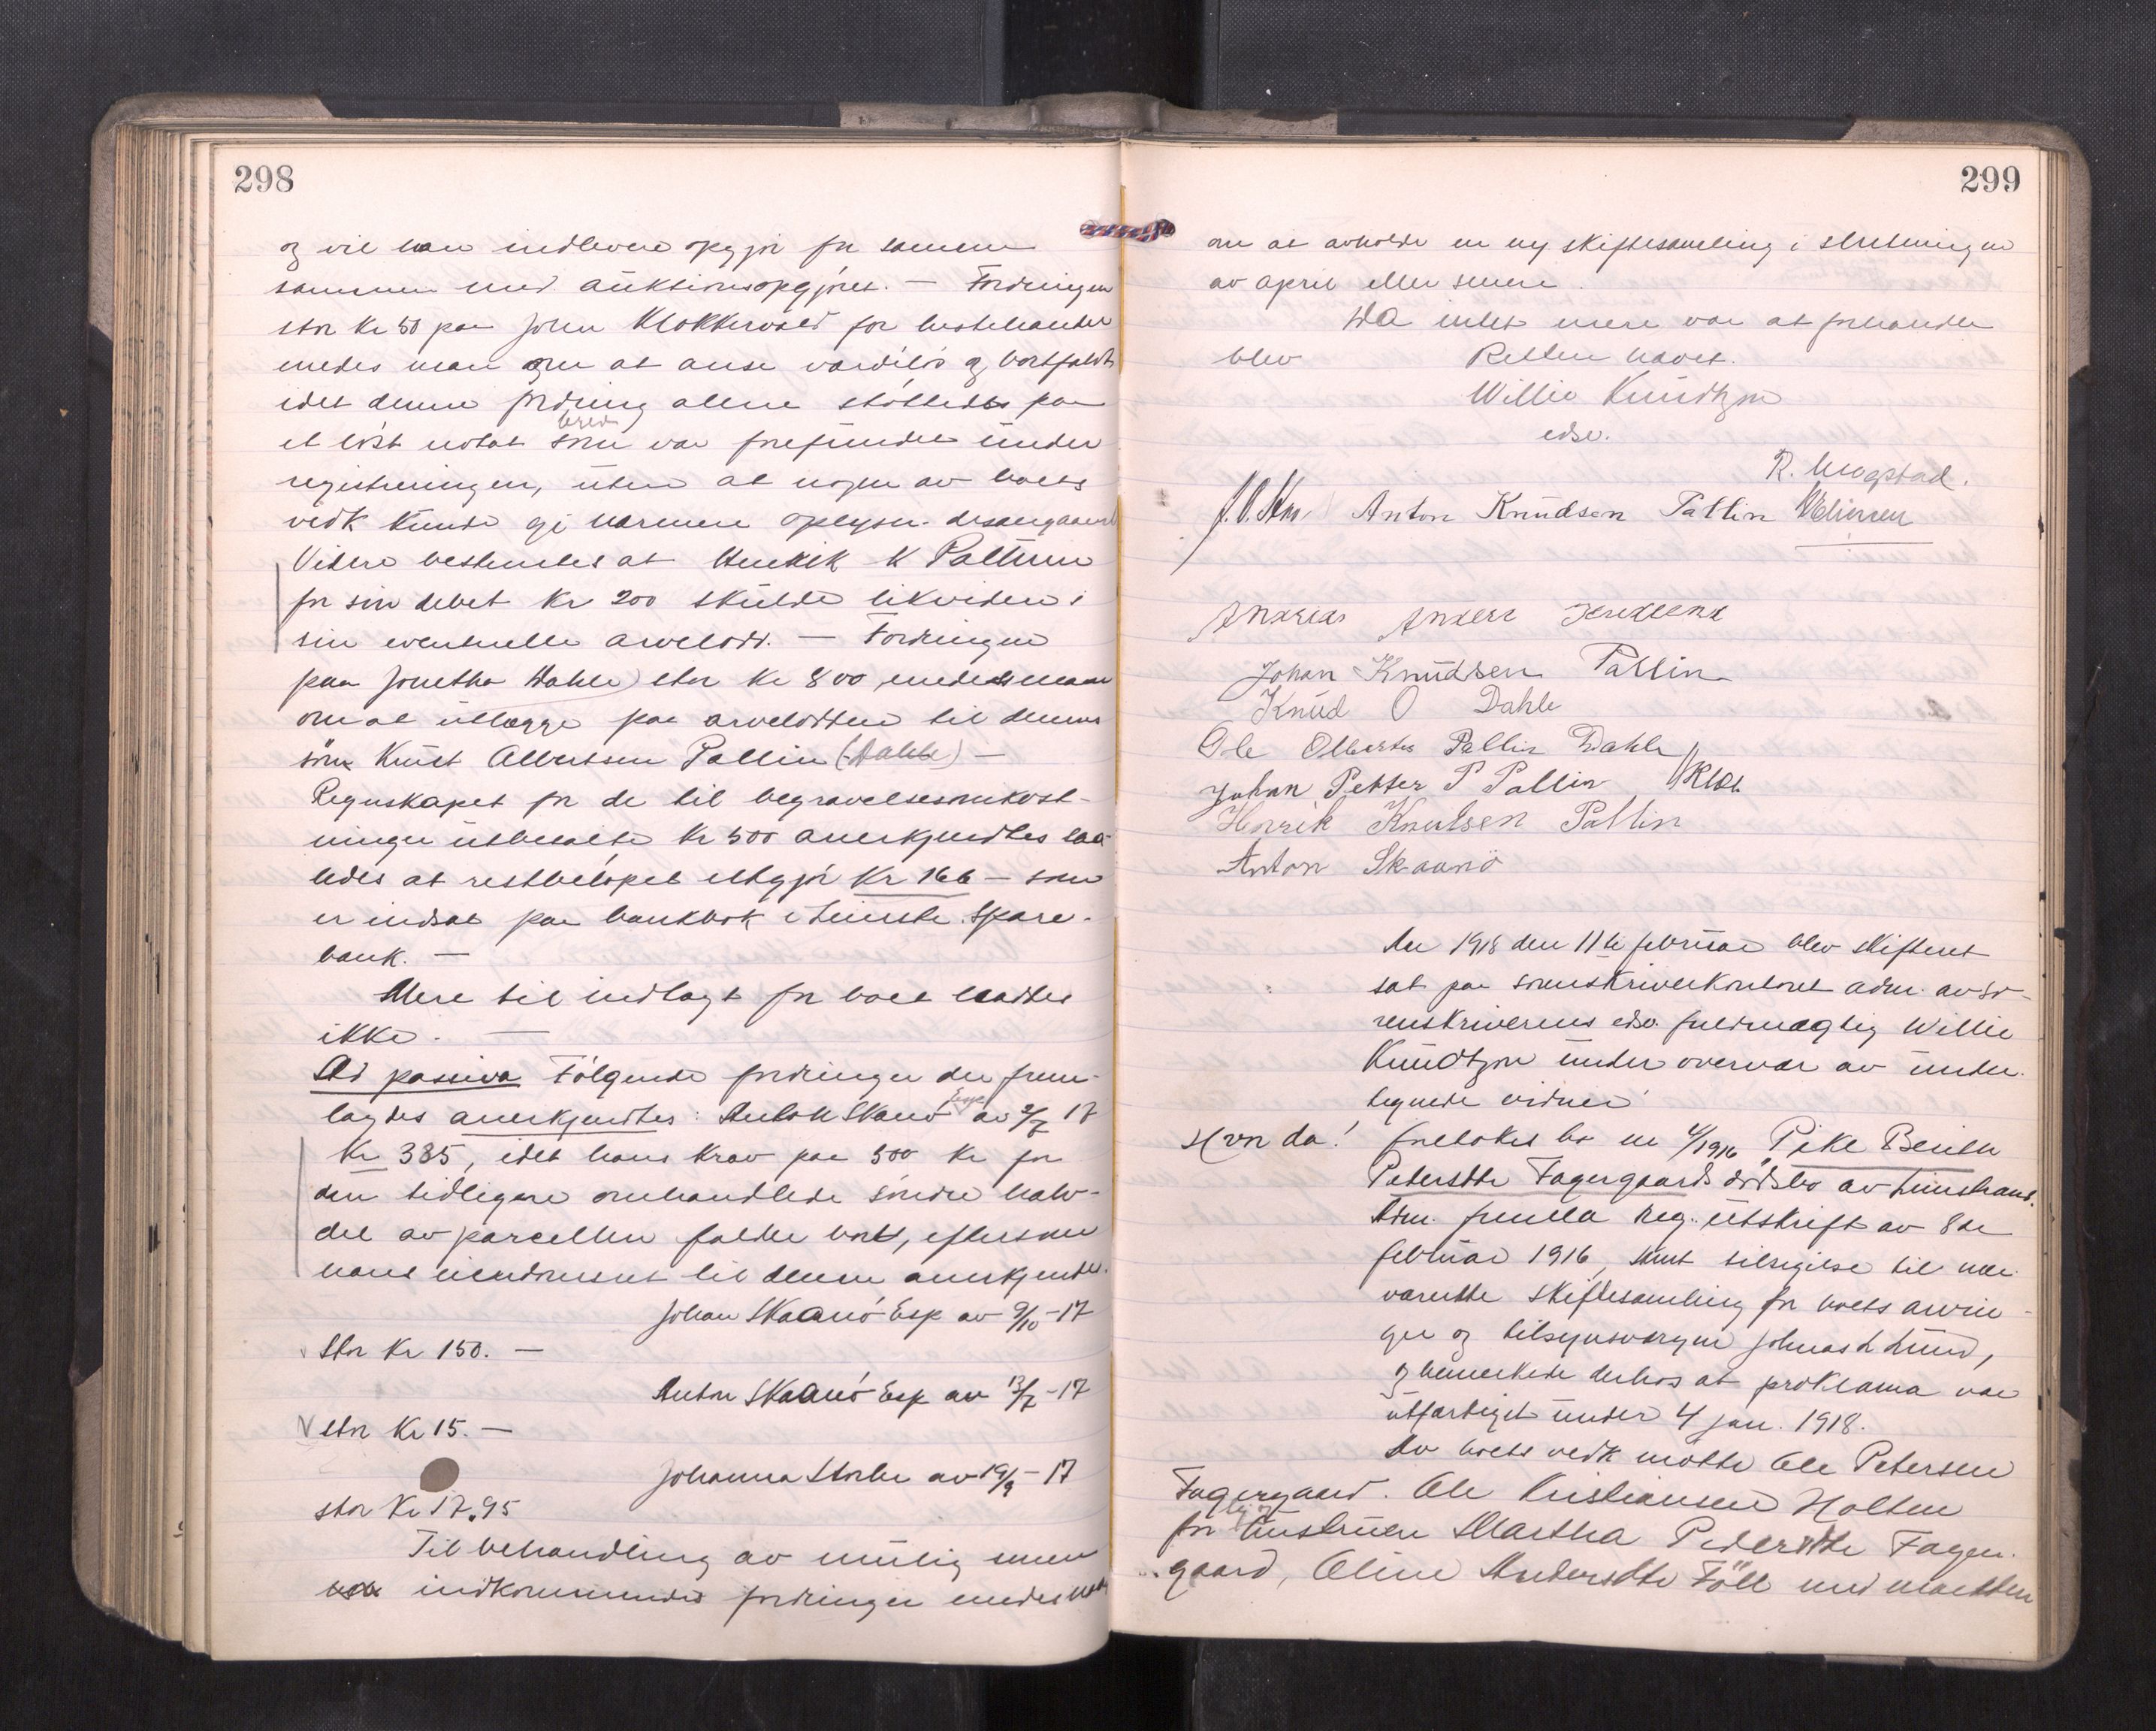 298
og vil han indlevere opgjør for samme
sammen med auktionsopgjøret. — Fordringen
stor Kr 50 paa John Klokkervold for hestehandel
enedes man om at anse værdiløs og bortfaldt
idet denne fordring alene støttedes paa
et løst notat som var forefundet under
registreringen, uten at nogen av boets
vedk kunde gi nærmere oplysn. desangaaende
Videre bestemtes at Henrik K Pallin
for sin debet Kr 200 skulde likvidere i
sin eventuelle arvelodd. — Fordringen
paa Jonetha Dahle stor Kr 800 enedes man
om at utlægge paa arvelodden til dennes
søn Knut Albertsen Pallin (Dahle) —
Regnskapet for de til begravelsesomkost-
ninger utbetalte Kr 500 anerkjendtes saa-
ledes at restbeløpet utgjør Kr 166 — som
er indsat paa bankbok i Spare-
bank. —
Mere til indtægt for boet havdes
ikke. —
Ad passiva Følgende fordringer der frem-
lagdes anerkjendtes: Anton Skaanø av 2/7 17
Kr 335, idet hans krav paa 500 Kr for
den tidligere omhandlede søndre halv-
del av parcellen falder bort, eftersom
hans eiendomsret til denne anerkjendes.
Johan Skaanø Esp av 9/10 - 17
stor Kr 150. —
Anton Skaanø Esp av 13/7 - 17
stor Kr 15. —
Johanna Storli av 19/9 - 17
stor Kr 17.95
Til behandling av mulig
indkommende fordringer enedes man
299
om at avholde en ny skiftesamling i slutningen
av april eller senere.
Da intet mere var at forhandle
blev Retten hævet.
Willie Knudtzon
edsv.
R. Mogstad.
Anton Knudsen Pallin
Andreas Anders
Johan Knudsen Pallin
Knud O Dahle
Ole Albertsen Pallin Dahle
Johan Petter P Pallin
Henrik Knutsen Pallin
Anton Skaanø
Aar 1918 den 11te februar blev skifteret
sat paa sorenskriverkontoret adm. av so-
renskriverens edsv. fuldmægtig Willie
Knudtzon under overvær av under-
tegnede vidner
Hvor da! foretokes bo nr 4/1916 Pike Berith
Petersdtr Fagergaards dødsbo av
Adm. fremla Reg. utskrift av 8de
februar 1916, samt tilsigelse til nær-
værende skiftesamling for boets arvin-
ger og tilsynsvergen Johnas L Lund,
og bemerkede derhos at proklama var
utfærdiget under 4 jan. 1918.
Av boets vedk møtte Ole Petersen
Fagergaard. Ole Kristiansen Holten
for hustruen Martha Pedersdtr Fager-
gaard, Oline Andersdtr Føll med